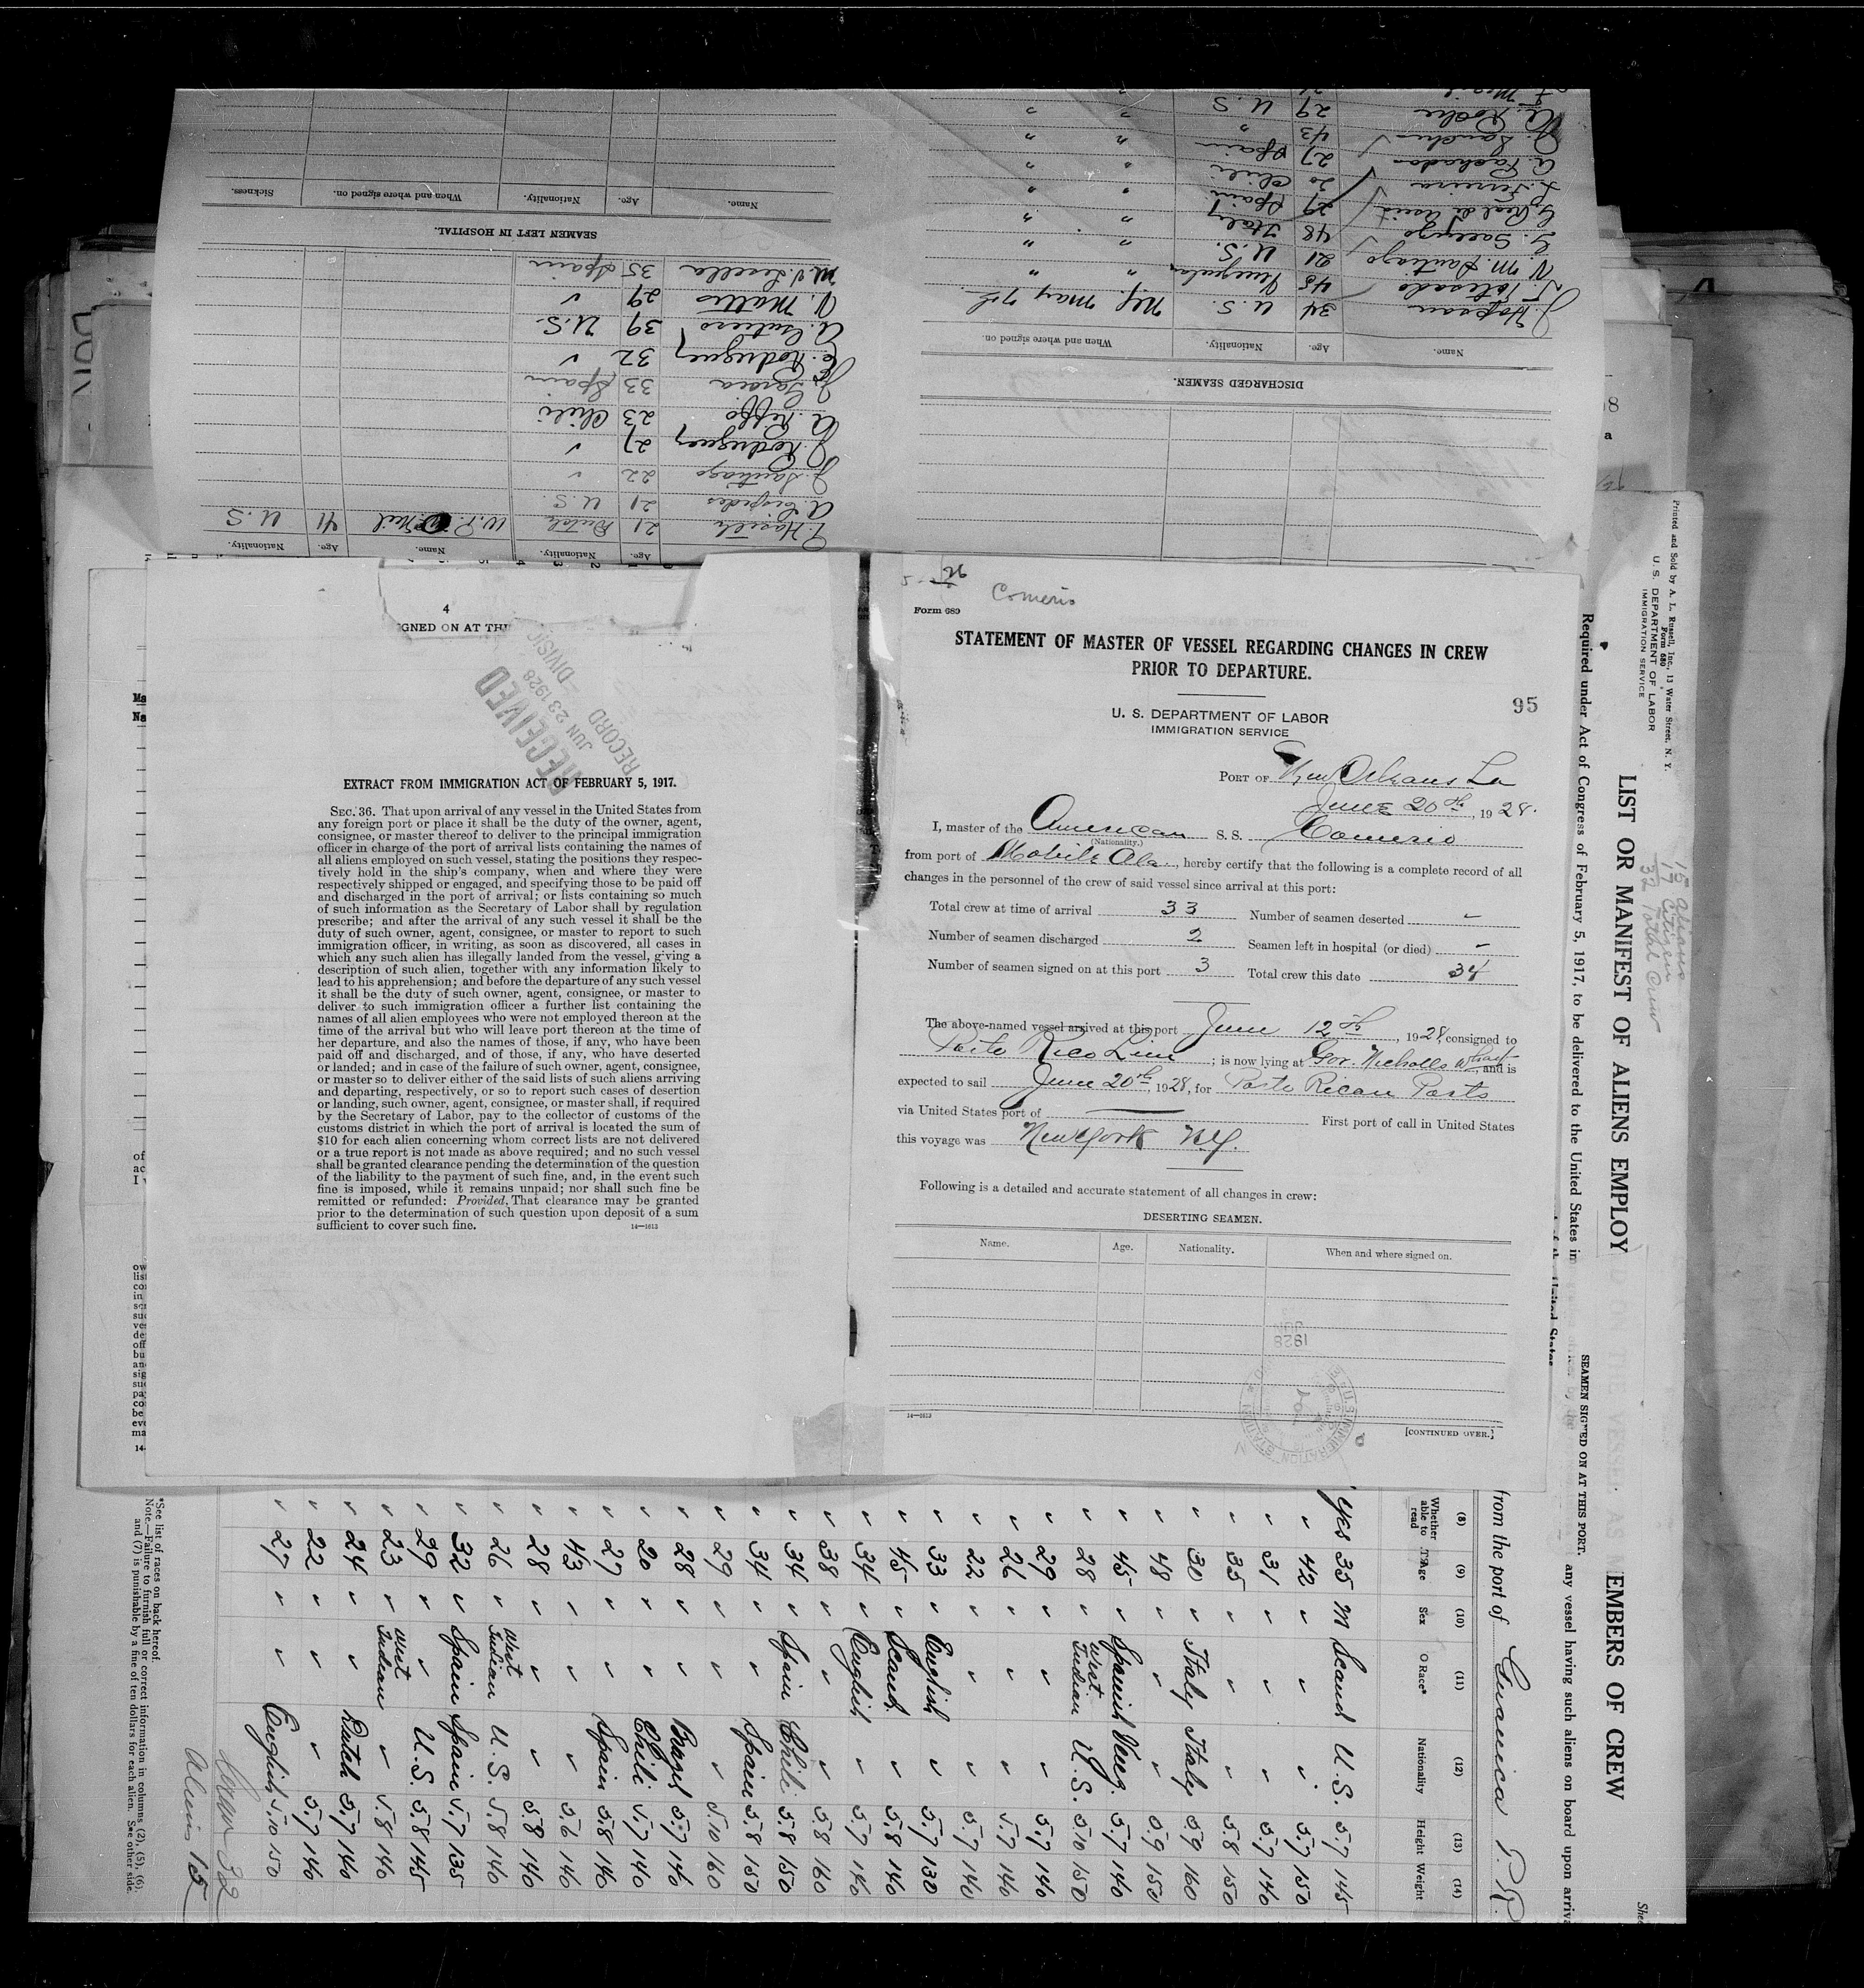 Comerio
Form 689
STATEMENT OF MASTER OF VESSEL REGARDING CHANGES IN CREW
PRIOR TO DEPARTURE.
95
U. S. DEPARTMENT OF LABOR
IMMIGRATION SERVICE
PORT OF New Orleans La
June 20th, 1928.
I, master of the American S. S. Comerio
(Nationality.)
from port of Mobile Ala., hereby certify that the following is a complete record of all
changes in the personnel of the crew of said vessel since arrival at this port:
Total crew at time of arrival 33 Number of seamen deserted -
Number of seamen discharged 2 Seamen left in hospital (or died) -
Number of seamen signed on at this port 3 Total crew this date 34
The above-named vessel arrived at this port June 12th, 1928, consigned to
Porto Rico Line; is now lying at Gov. Nicholls Wharf and is
expected to sail June 20th 1928, for Porto Rican Ports
via United States port of —— First port of call in United States
this voyage was New York N.Y.
Following is a detailed and accurate statement of all changes in crew:
DESERTING SEAMEN.
Name. Age. Nationality. When and where signed on.
14—1613
[CONTINUED OVER.]
4
GNED ON AT THI
RECEIVED
JUN 23 1928
RECORD DIVISIO
EXTRACT FROM IMMIGRATION ACT OF FEBRUARY 5, 1917.
SEC. 36. That upon arrival of any vessel in the United States from
any foreign port or place it shall be the duty of the owner, agent,
consignee, or master thereof to deliver to the principal immigration
officer in charge of the port of arrival lists containing the names of
all aliens employed on such vessel, stating the positions they respec-
tively hold in the ship's company, when and where they were
respectively shipped or engaged, and specifying those to be paid off
and discharged in the port of arrival; or lists containing so much
of such information as the Secretary of Labor shall by regulation
prescribe; and after the arrival of any such vessel it shall be the
duty of such owner, agent, consignee, or master to report to such
immigration officer, in writing, as soon as discovered, all cases in
which any such alien has illegally landed from the vessel, giving a
description of such alien, together with any information likely to
lead to his apprehension; and before the departure of any such vessel
it shall be the duty of such owner, agent, consignee, or master to
deliver to such immigration officer a further list containing the
names of all alien employees who were not employed thereon at the
time of the arrival but who will leave port thereon at the time of
her departure, and also the names of those, if any, who have been
paid off and discharged, and of those, if any, who have deserted
or landed; and in case of the failure of such owner, agent, consignee,
or master so to deliver either of the said lists of such aliens arriving
and departing, respectively, or so to report such cases of desertion
or landing, such owner, agent, consignee, or master shall, if required
by the Secretary of Labor, pay to the collector of customs of the
customs district in which the port of arrival is located the sum of
$10 for each alien concerning whom correct lists are not delivered
or a true report is not made as above required; and no such vessel
shall be granted clearance pending the determination of the question
of the liability to the payment of such fine, and, in the event such
fine is imposed, while it remains unpaid; nor shall such fine be
remitted or refunded: Provided, That clearance may be granted
prior to the determination of such question upon deposit of a sum
sufficient to cover such fine.
14—1613
DISCHARGED SEAMEN.
Name. Age. Nationality. When and where signed on.
34 U.S. NY. May 7th
21 U.S. " "
N. M. Santiago
48 Italy " "
29 Spain " "
20 Chili " "
27 Spain " "
43 " " "
29 U S " "
Age. Nationality. Name. Age. Nationality.
21 Dutch 41 U.S
21 U.S.
J. Santiago 22 ✓
J. Rodriguez 27 ✓
A. Riffo 23 Chili
J. Garcia 33 Spain
E. Rodriguez 32 ✓
39 U.S.
N. Mattos 29 ✓
35 Spain
SEAMEN LEFT IN HOSPITAL.
Name. Age. Nationality. When and where signed on. Sickness.
Printed and Sold by A. L. Russell, Inc., 13 Water Street, N. Y.
Form 680
U. S. DEPARTMENT OF LABOR
IMMIGRATION SERVICE
15 Aliens
17 Citizen
32 Total Crew
LIST OR MANIFEST OF ALIENS EMPLOY
EMBERS OF CREW
Required under Act of Congress of February 5, 1917, to be delivered to the United States im
SEAMEN SIGNED ON AT THIS PORT.
any vessel having such aliens on board upon arriva
from the port of Guanica P.R.
(8) (9) (10) (11) (12) (13) (14)
Whether able to read Age Sex Race* Nationality Height Weight
Yes 35 M Scand U.S. 5.7 145
" 42 " " " 5.7 150
" 31 " " " 5.7 140
" 35 " " " 5.8 150
" 30 " Italy Italy 5.9 160
" 48 " " " 5.9 150
" 45 " Spanish Venez. 5.7 140
" 28 " West Indian U.S. 5.10 150
" 29 " " " 5.7 140
" 26 " " " 5.7 140
" 22 " " " 5.7 140
" 33 " English " 5.7 130
" 45 " Scand. " 5.8 140
" 34 " English " 5.7 140
" 38 " " " 5.8 160
" 34 " Spain Chili 5.8 150
" 34 " " Spain 5.8 150
" 29 " " " 5.10 160
" 28 " " Brazil 5.7 140
" 20 " " Chili 5.7 140
" 27 " " Spain 5.8 140
" 43 " " " 5.6 140
" 28 " " " 5.8 140
" 26 " West Indian U.S. 5.8 140
" 32 " Spain Spain 5.7 135
" 29 " " U.S. 5.8 145
" 23 " West Indian " 5.8 140
" 24 " " Dutch 5.7 140
" 22 " " " 5.7 140
" 27 " " English 5.10 150
*See list of races on back hereof.
Note.—Failure to furnish full or correct information in columns (2), (5), (6),
and (7) is punishable by a fine of ten dollars for each alien. See other side.
Crew 32
Aliens 15